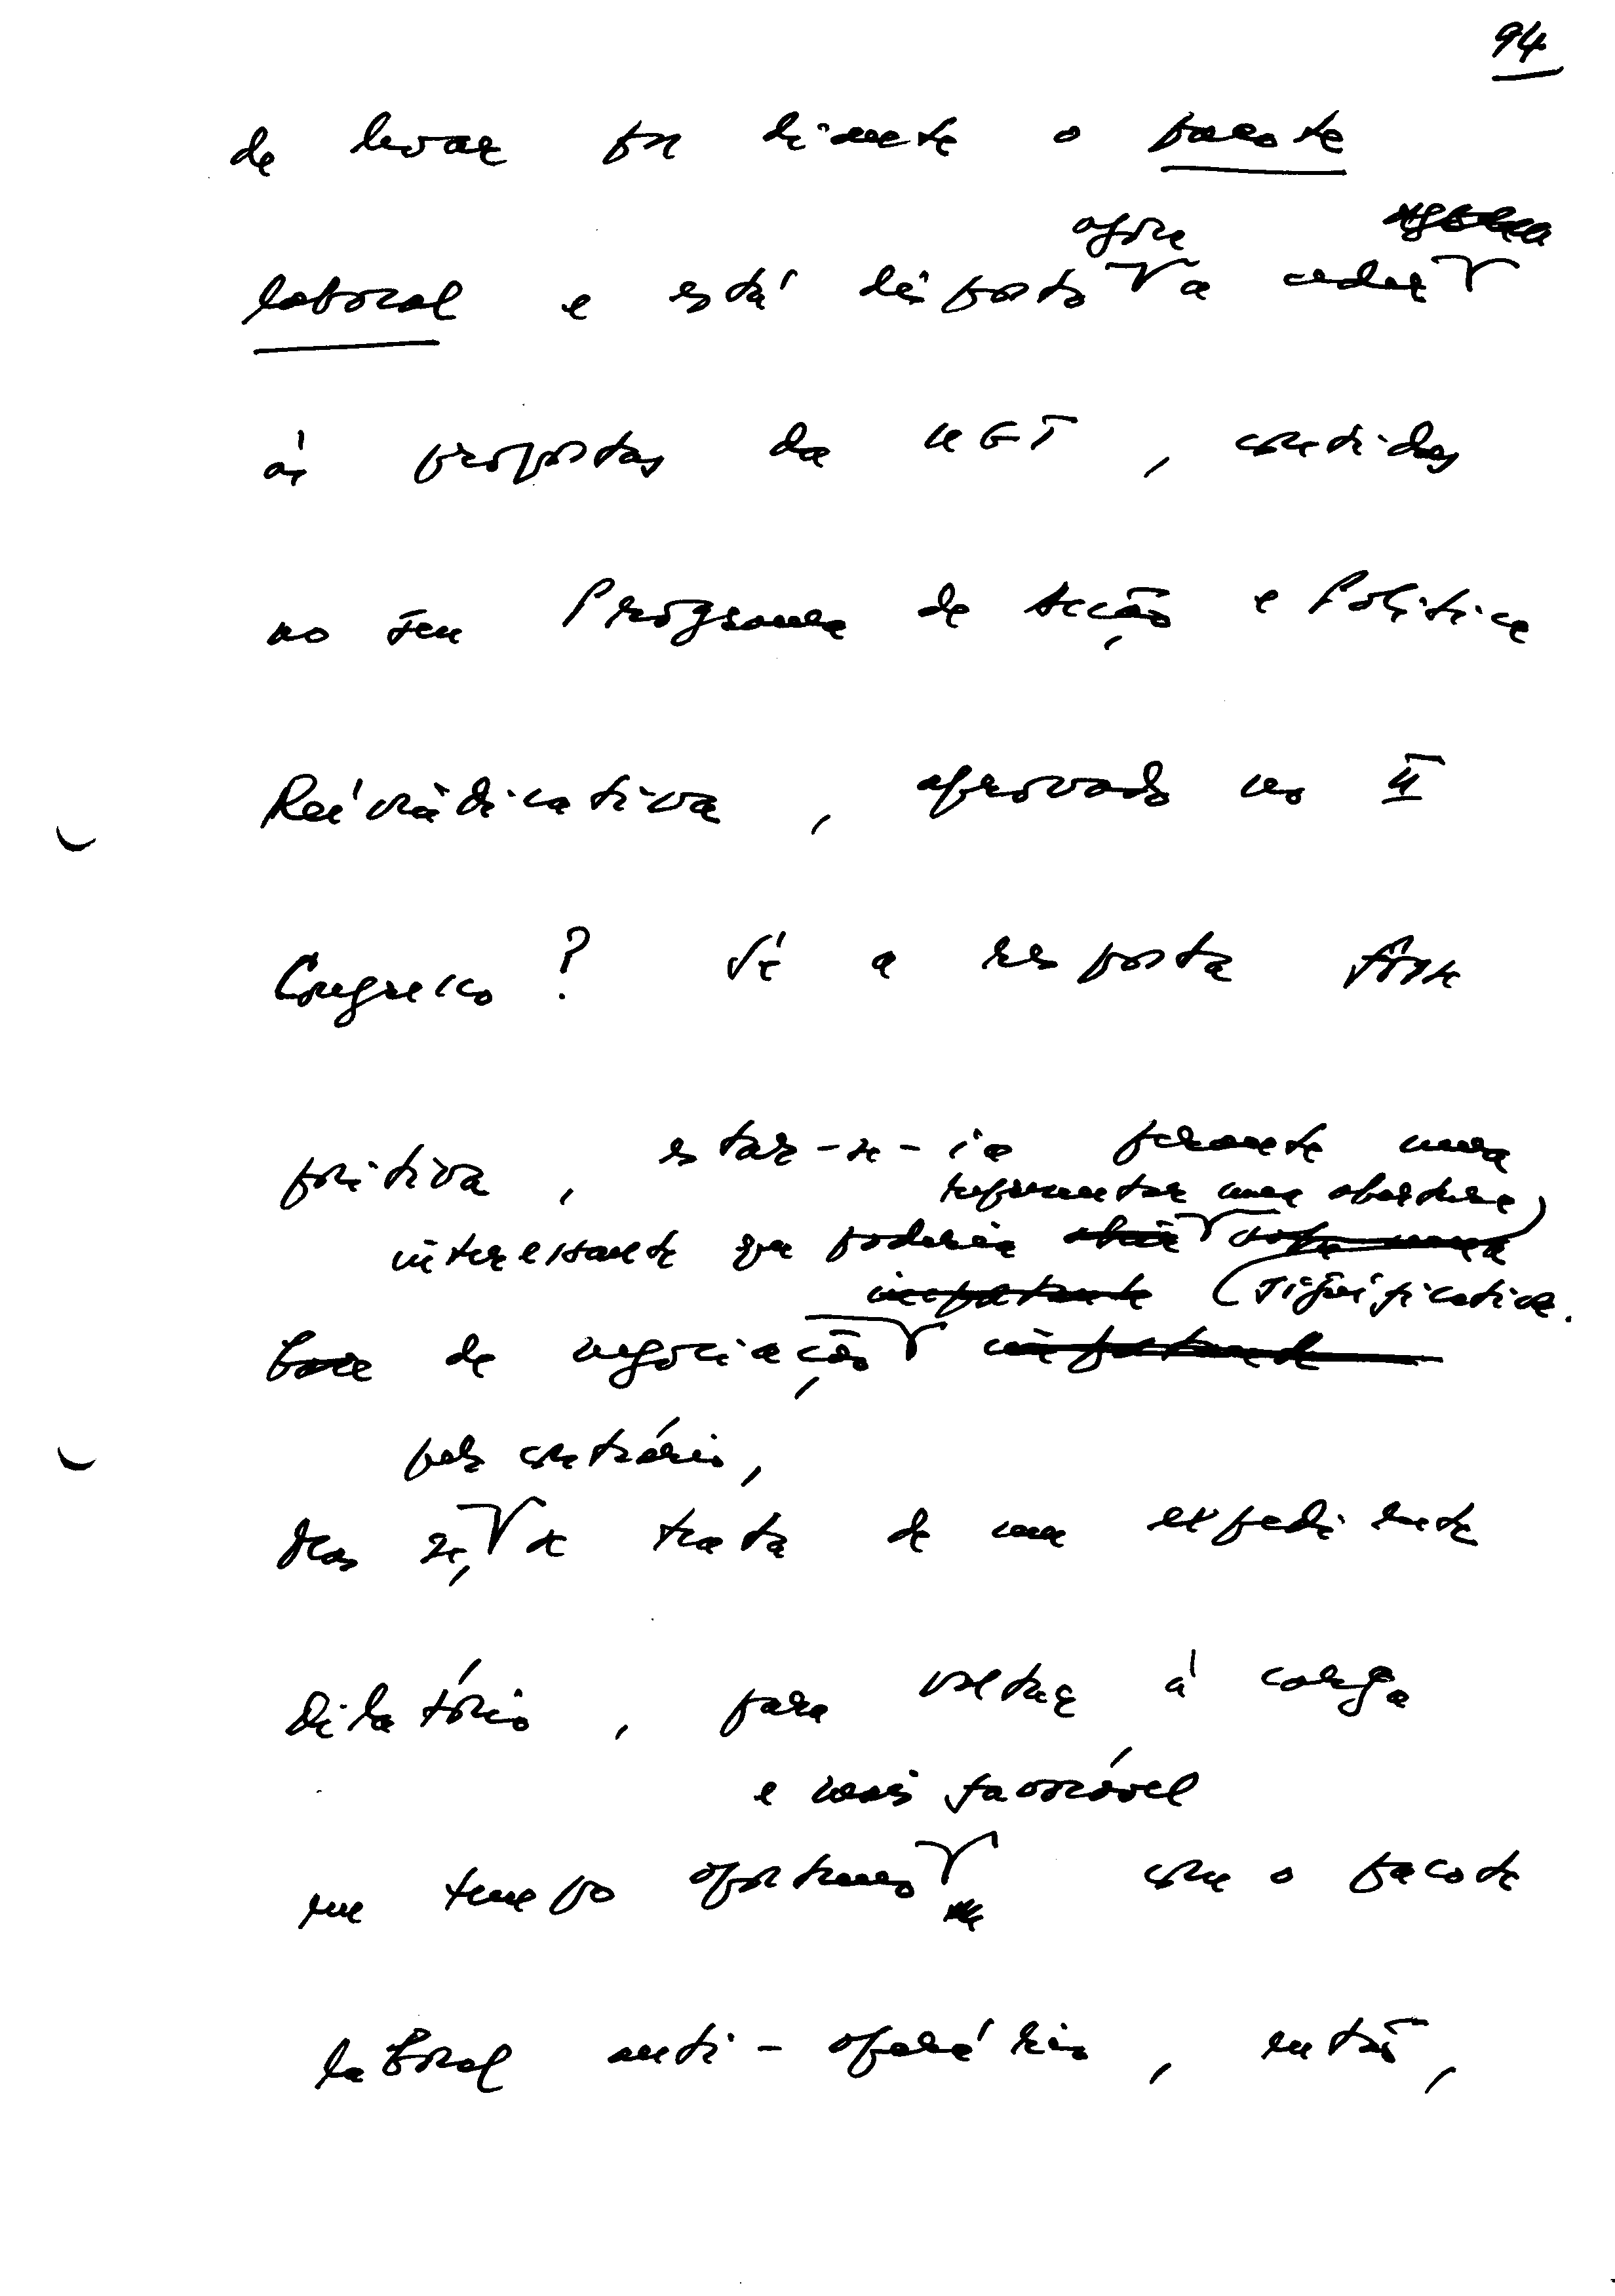 94
de levar por diante o pacote
agora
laboral e está disposto a ceder
às propostas da UGT, contidas
no seu Programa de Acção e Política
Reivindicativa, aprovado no II
Congresso? Se a resposta fosse
positiva, estar-se-ia perante uma
representar uma abertura
interessante que poderia
importante significativa.
base de negociação importante
pelo contrário,
Mas se, se trata de um expediente
dilatório, para voltar à carga
e mais favorável
em tempo oportuno com o pacote
laboral anti-operário, então,